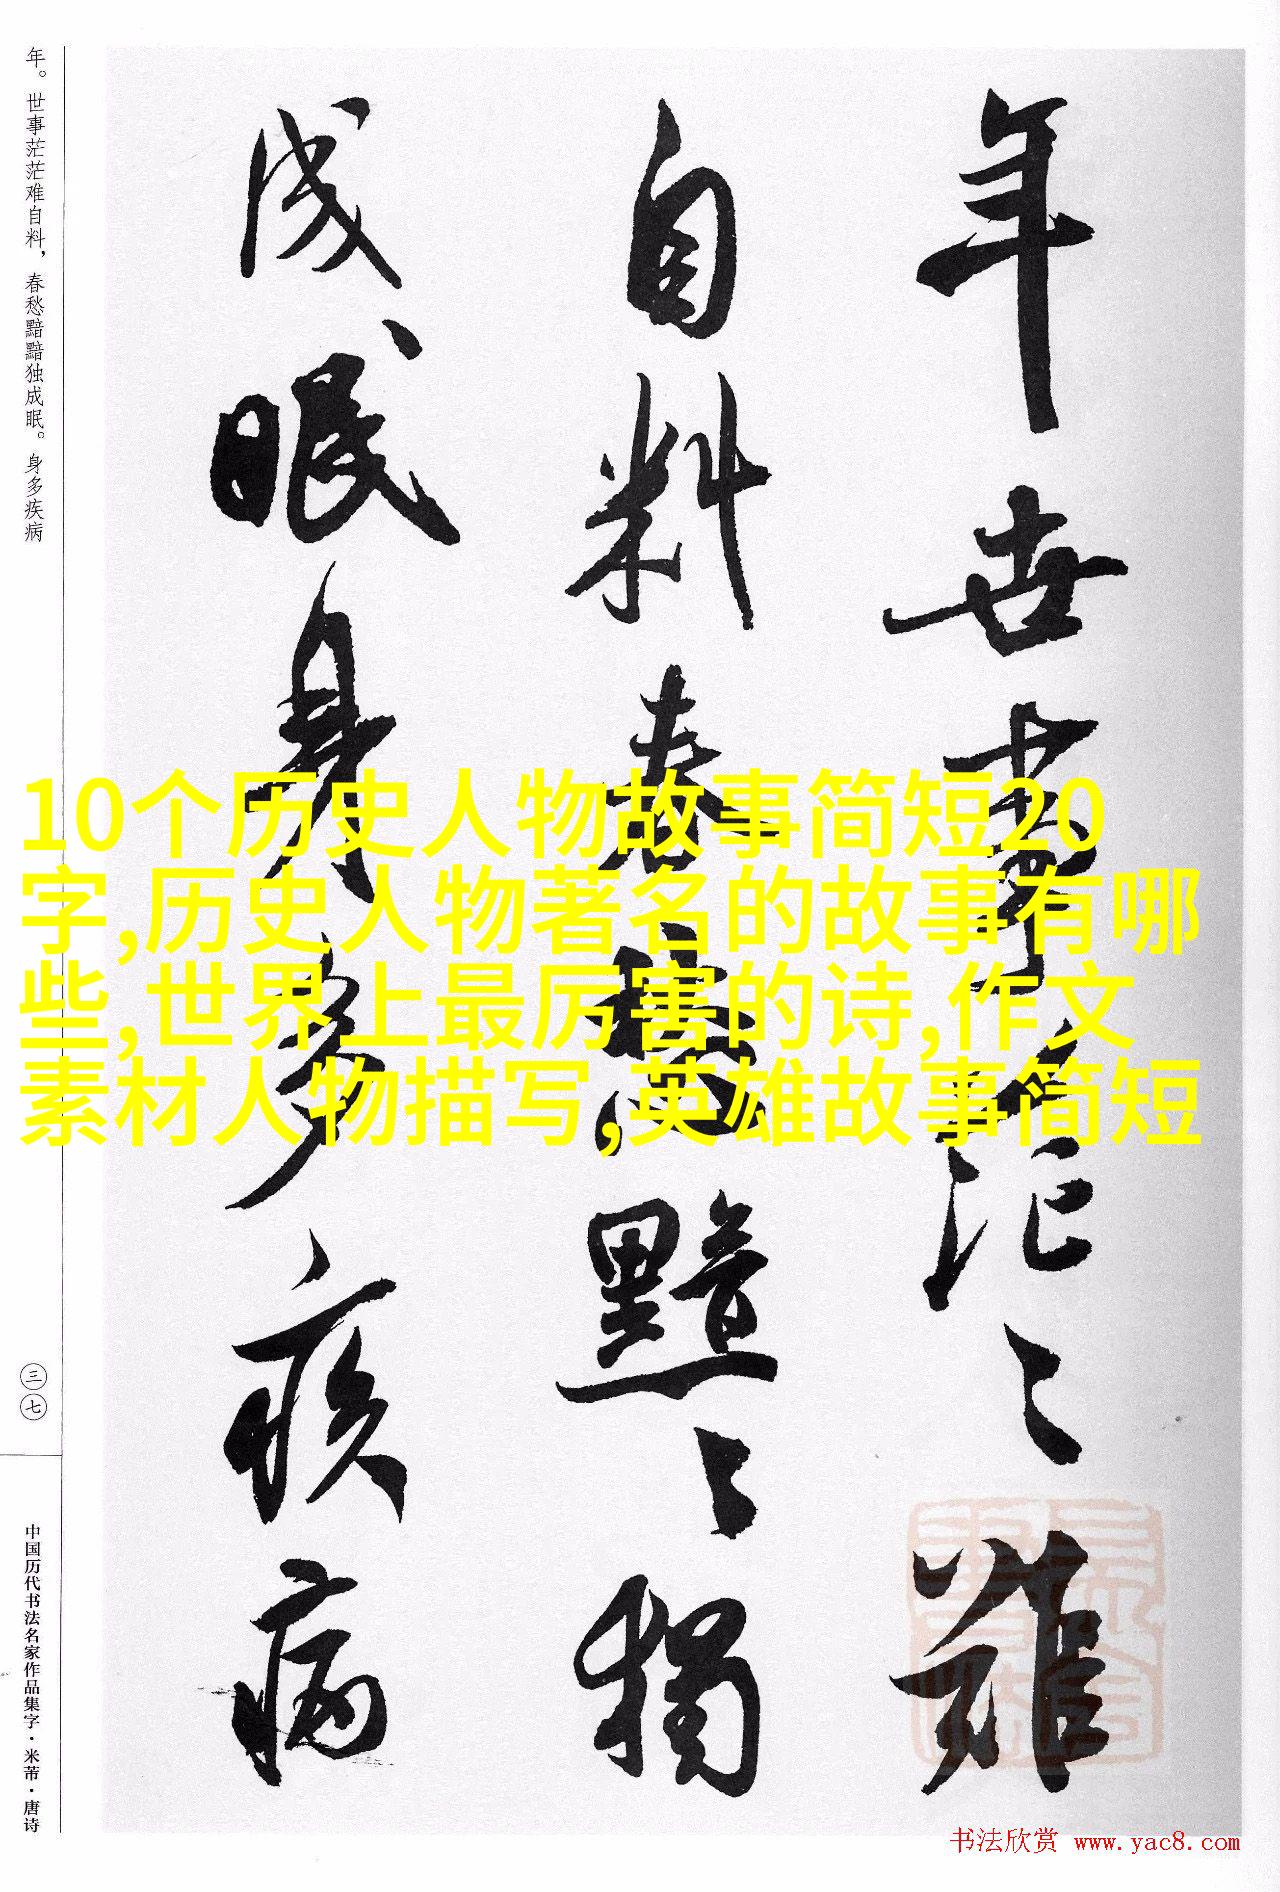 年。世事茫茫难自料，春愁黯黯独成眠。身多疾病
三七
中国历代书法名家作品集字·米芾·唐诗
年世事茫〻难
自料春愁黯〻独
成眠身多疾病
10个历史人物故事简短20
字,历史人物著名的故事有哪
些,世界上最厉害的诗,作文
素材人物描写,英雄故事简短
书法欣赏 www.yac8.com